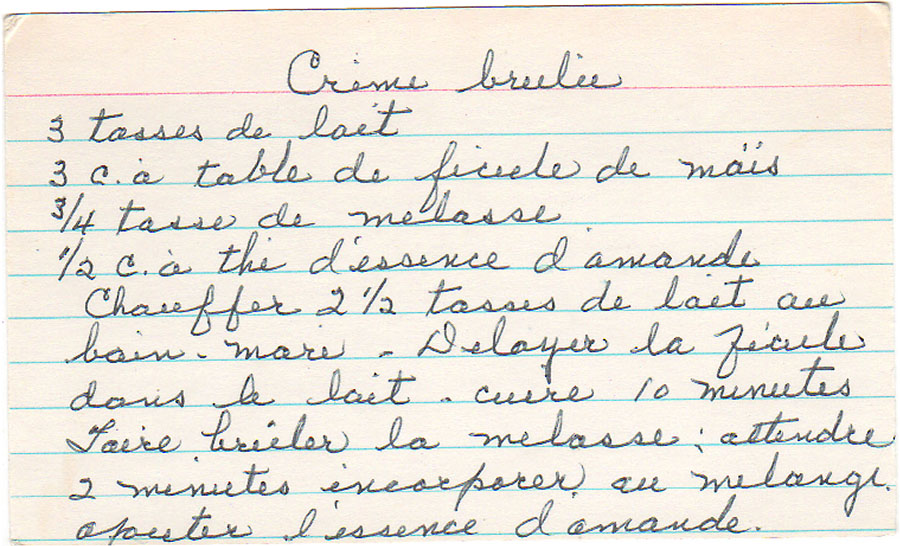 Crème brulée
3 tasses de lait
3 c. à table de fécule de maïs
3/4 tasse de melasse
1/2 c. à thé d'essence d'amande
Chauffer 2 1/2 tasses de lait au
bain-marie - Delayer la fécule
dans le lait - cuire 10 minutes
Faire brûler la melasse; attendre
2 minutes incorporer au melange.
ajouter l'essence d'amande.